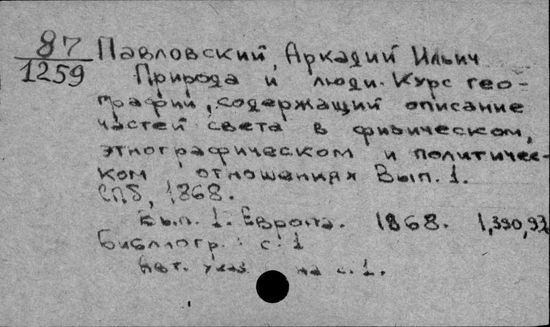 87
1259
Павловский, Аркадий Ильич
Природа и люди. Курс гео-
графии, содержащий описание
частей света в физическом,
этнографическом и политичес-
ком отношениях Вып. 1.
СПб, 1868.
Вып. 1. Европа. 1868. 1,390,93
Библиогр.: с. 1
Авт. указ на с. 1.